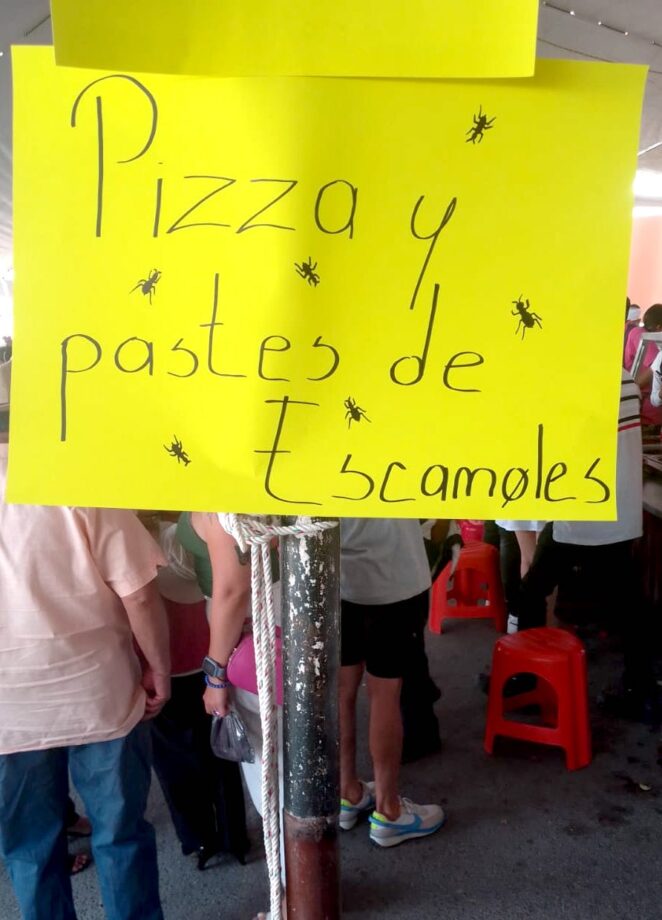 Pizza y
pastes de
Escamøles